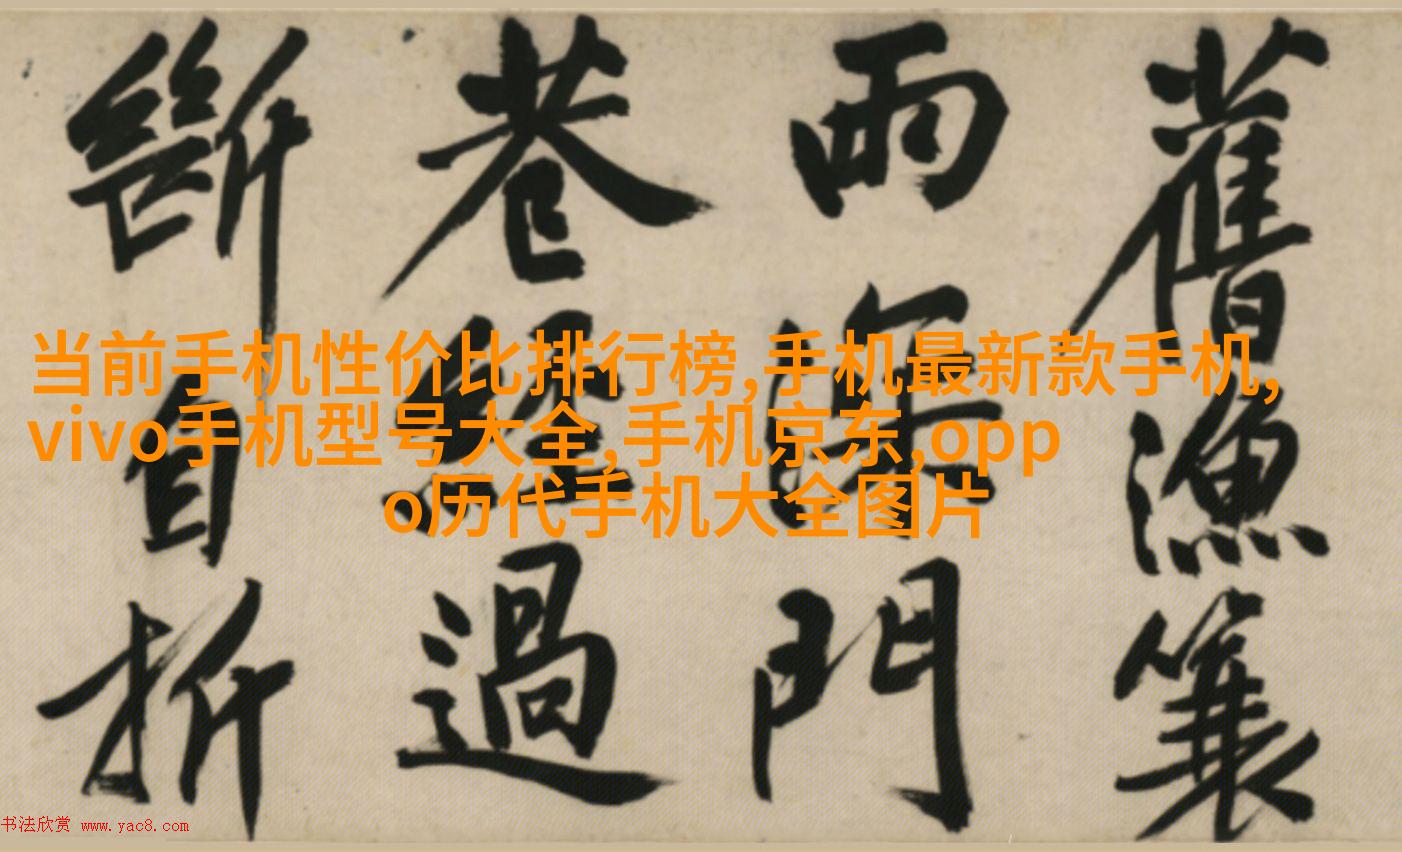 舊漁簑
雨深門
巷經過
斷自折
当前手机性价比排行榜,手机最新款手机,
vivo手机型号大全,手机京东,opp
o历代手机大全图片
书法欣赏 www.yac8.com